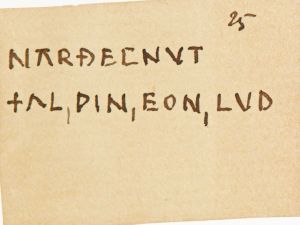 25
NARÐECNVT
+AL,PIN,EON,LVD